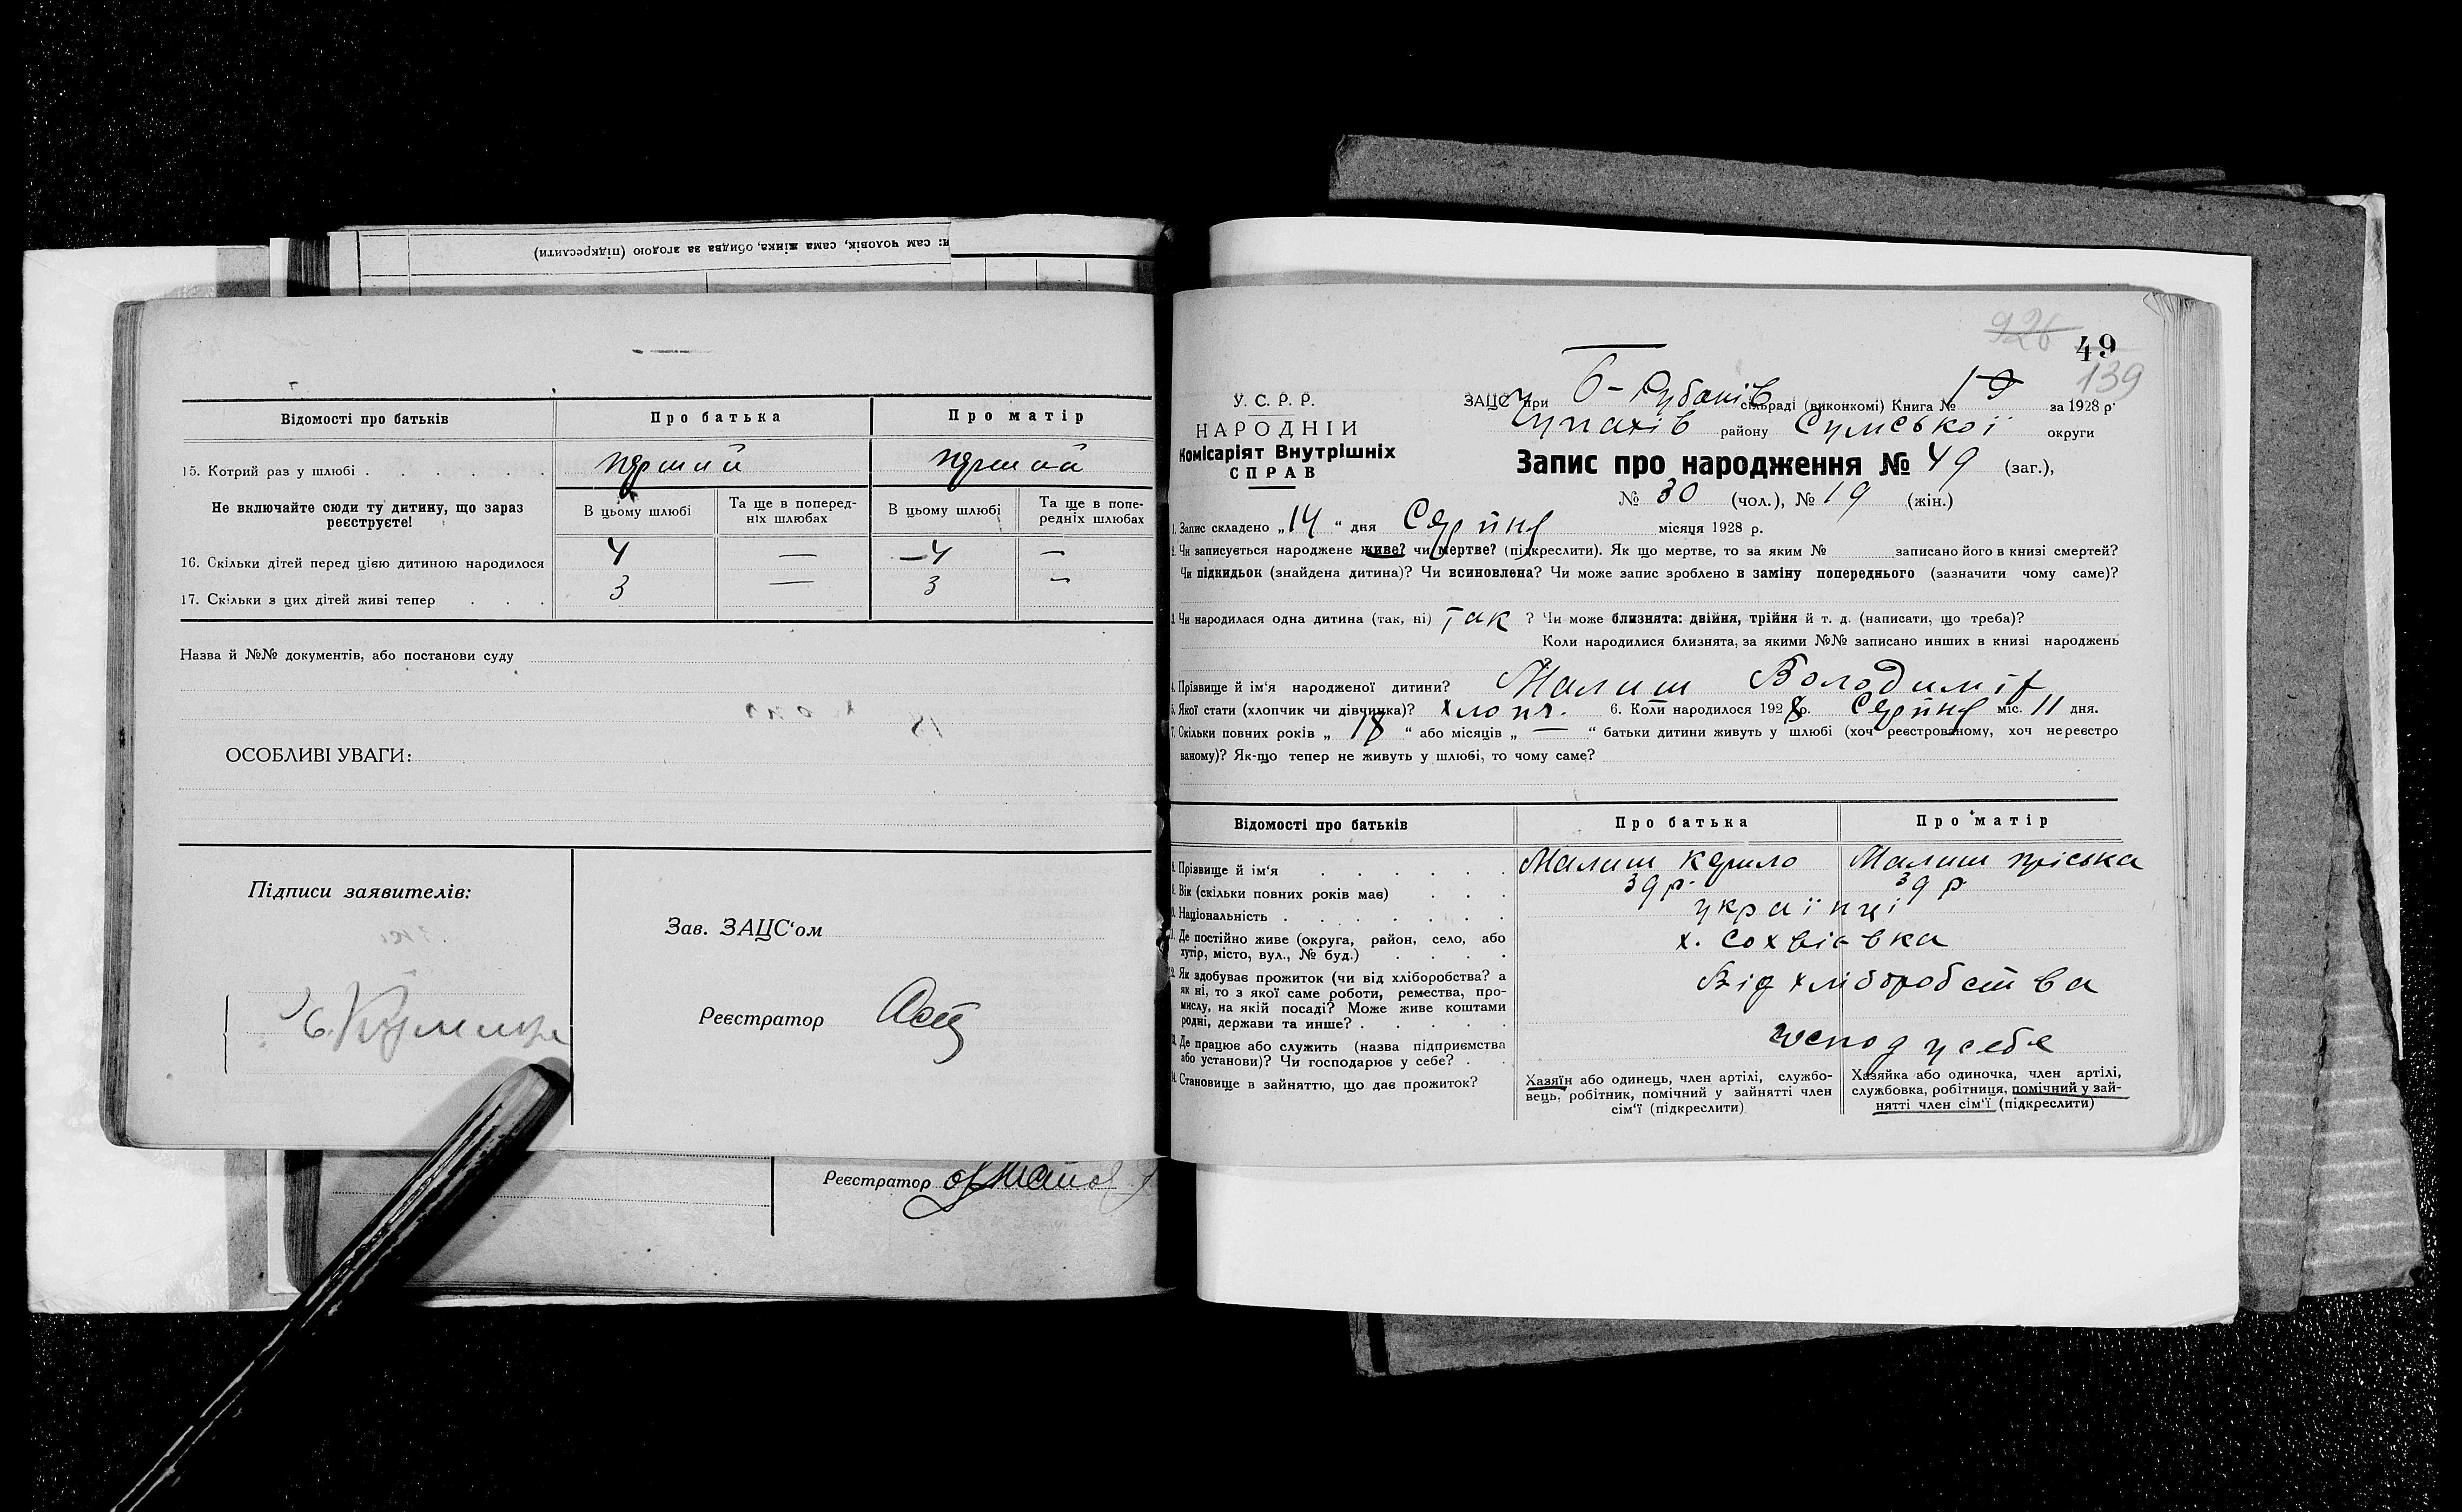 и: сам чоловік, сама жінка, обидва за згодою (підкреслити)
Відомості про батьків Про батька Про матір
15. Котрий раз у шлюбі . . . . . . перший перший
Не включайте сюди ту дитину, що зараз реєструєте!
В цьому шлюбі Та ще в попередніх шлюбах В цьому шлюбі Та ще в попередніх шлюбах
16. Скільки дітей перед цією дитиною народилося 4 — —4 —
17. Скільки з цих дітей живі тепер . . . 3 — 3 -
Назва й №№ документів, або постанови суду
ОСОБЛИВІ УВАГИ:
Підписи заявителів:
Зав. ЗАЦС‘ом
Реєстратор
Реєстратор
926
49
139
У. С. Р. Р.
НАРОДНІЙ
Комісаріят Внутрішніх
СПРАВ
ЗАЦС при Б-Рубанів сільраді (виконкомі) Книга № 19 за 1928 р.
Чупахів району Сумської округи
Запис про народження № 49 (заг.),
№ 30 (чол.), № 19 (жін.)
1. Запис складено „14“ дня Серпня місяця 1928 р.
2. Чи записується народжене живе? чи мертве? (підкреслити). Як що мертве, то за яким № записано його в книзі смертей?
Чи підкидьок (знайдена дитина)? Чи всиновлена? Чи може запис зроблено в заміну попереднього (зазначити чому саме)?
3. Чи народилася одна дитина (так, ні) Так ? Чи може близнята: двійня, трійня й т. д. (написати, що треба)?
Коли народилися близнята, за якими №№ записано инших в книзі народжень
4. Прізвище й ім‘я народженої дитини? Малиш Володимір
5. Якої статі (хлопчик чи дівчинка)? хлопч. 6. Коли народилося 1928 р. Серпня міс. 11 дня.
7. Скільки повних років „18“ або місяців „—“ батьки дитини живуть у шлюбі (хоч реєстрованому, хоч нереєстро
ваному)? Як-що тепер не живуть у шлюбі, то чому саме?
Відомості про батьків Про батька Про матір
8. Прізвище й ім‘я . . . . . . Малиш Керило Малиш пріська
9. Вік (скільки повних років має) . . . 39 р. 39 р
10. Національність . . . . . . . українці
11. Де постійно живе (округа, район, село, або
хутір, місто, вул., № буд.) . . . . х. Сохвіівка
12. Як здобуває прожиток (чи від хліборобства? а
як ні, то з якої саме роботи, ремества, про-
мислу, на якій посаді? Може живе коштами
родні, держави та инше? . . . . . Від хліборобства
13. Де працює або служить (назва підприємства
або установи)? Чи господарює у себе? . . господ у себе
14. Становище в зайняттю, що дає прожиток?
Хазяїн або одинець, член артілі, службо-
вець, робітник, помічний у зайнятті член
сім‘ї (підкреслити)
Хазяйка або одиночка, член артілі,
службовка, робітниця, помічний у зай-
нятті член сім‘ї (підкреслити)